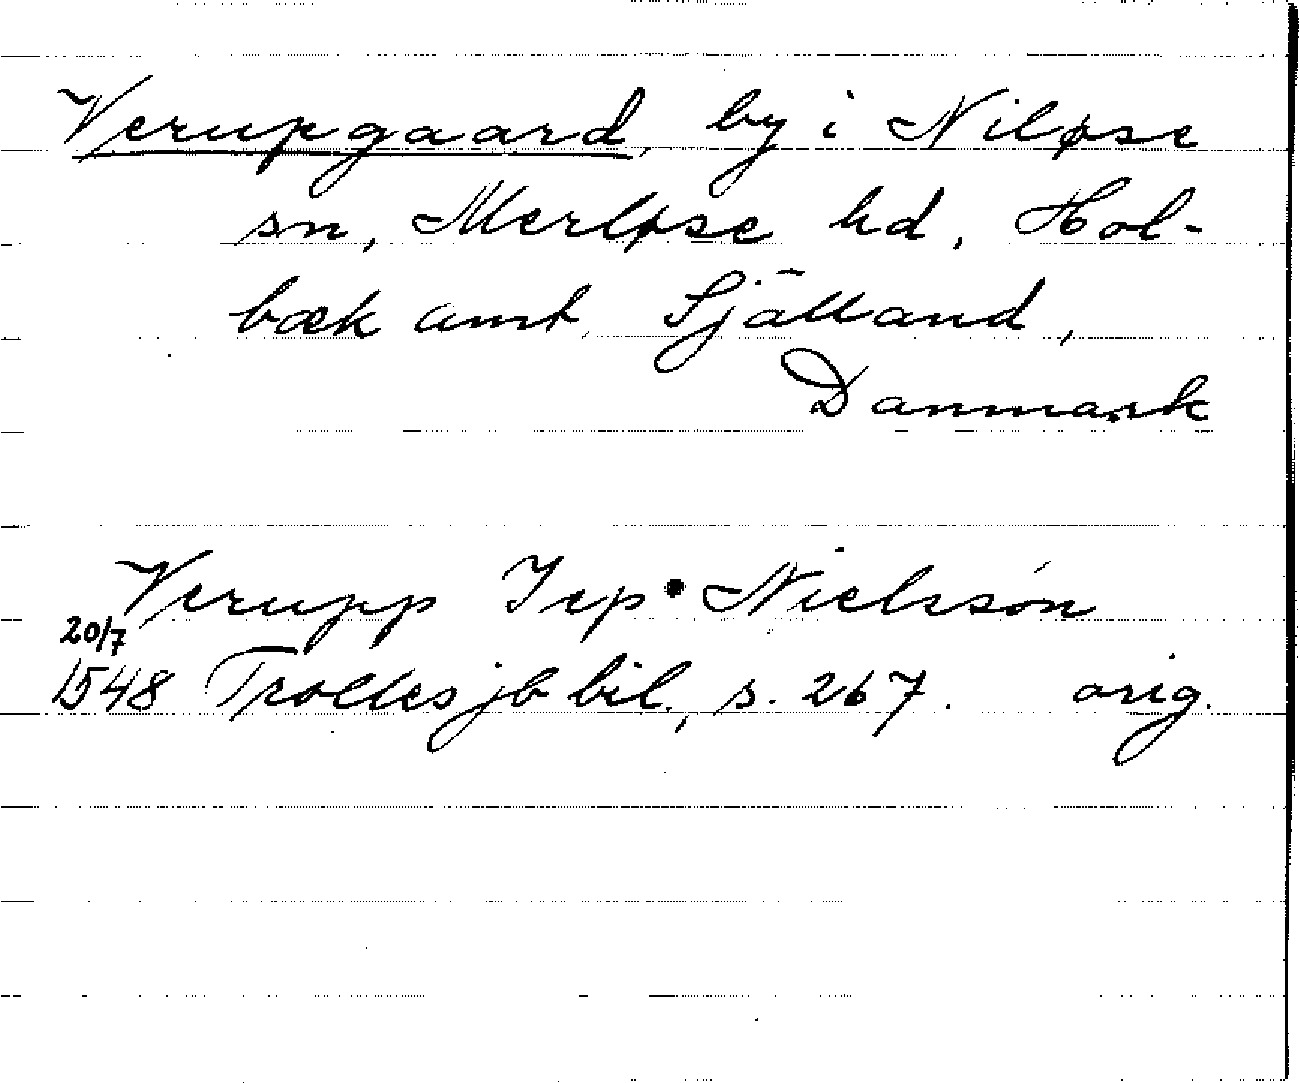 Verupgaard, by i Niløse
sn, Merløse hd, Hol-
bæk amt, Själland,
Danmark
Verupp Jep Nielssøn
20/7
1548 Trolles jb bil., s. 267. orig.